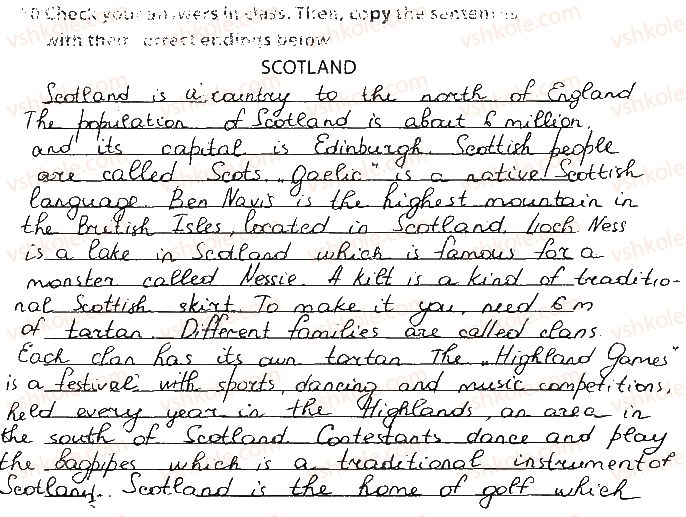 10 Check your answers in class. Then, copy the sentences
with their correct endings below
SCOTLAND
Scotland is a country to the north of England
The population of Scotland is about 6 million,
and its capital is Edinburgh. Scottish people
are called Scots. „Gaelic" is a native Scottish
language. Ben Navis is the highest mountain in
the British Isles, located in Scotland. Loch Ness
is a lake in Scotland which is famous for a
monster called Nessie. A kilt is a kind of traditio-
nal Scottish skirt. To make it you, need 6 m
of tartan. Different families are called clans.
Each clan has its own tartan The „Highland Games"
is a festival with sports, dancing and music competitions,
held every year in the Highlands, an area in
the south of Scotland. Contestants dance and play
the bagpipes which is a traditional instrument of
Scotland. Scotland is the home of golf which